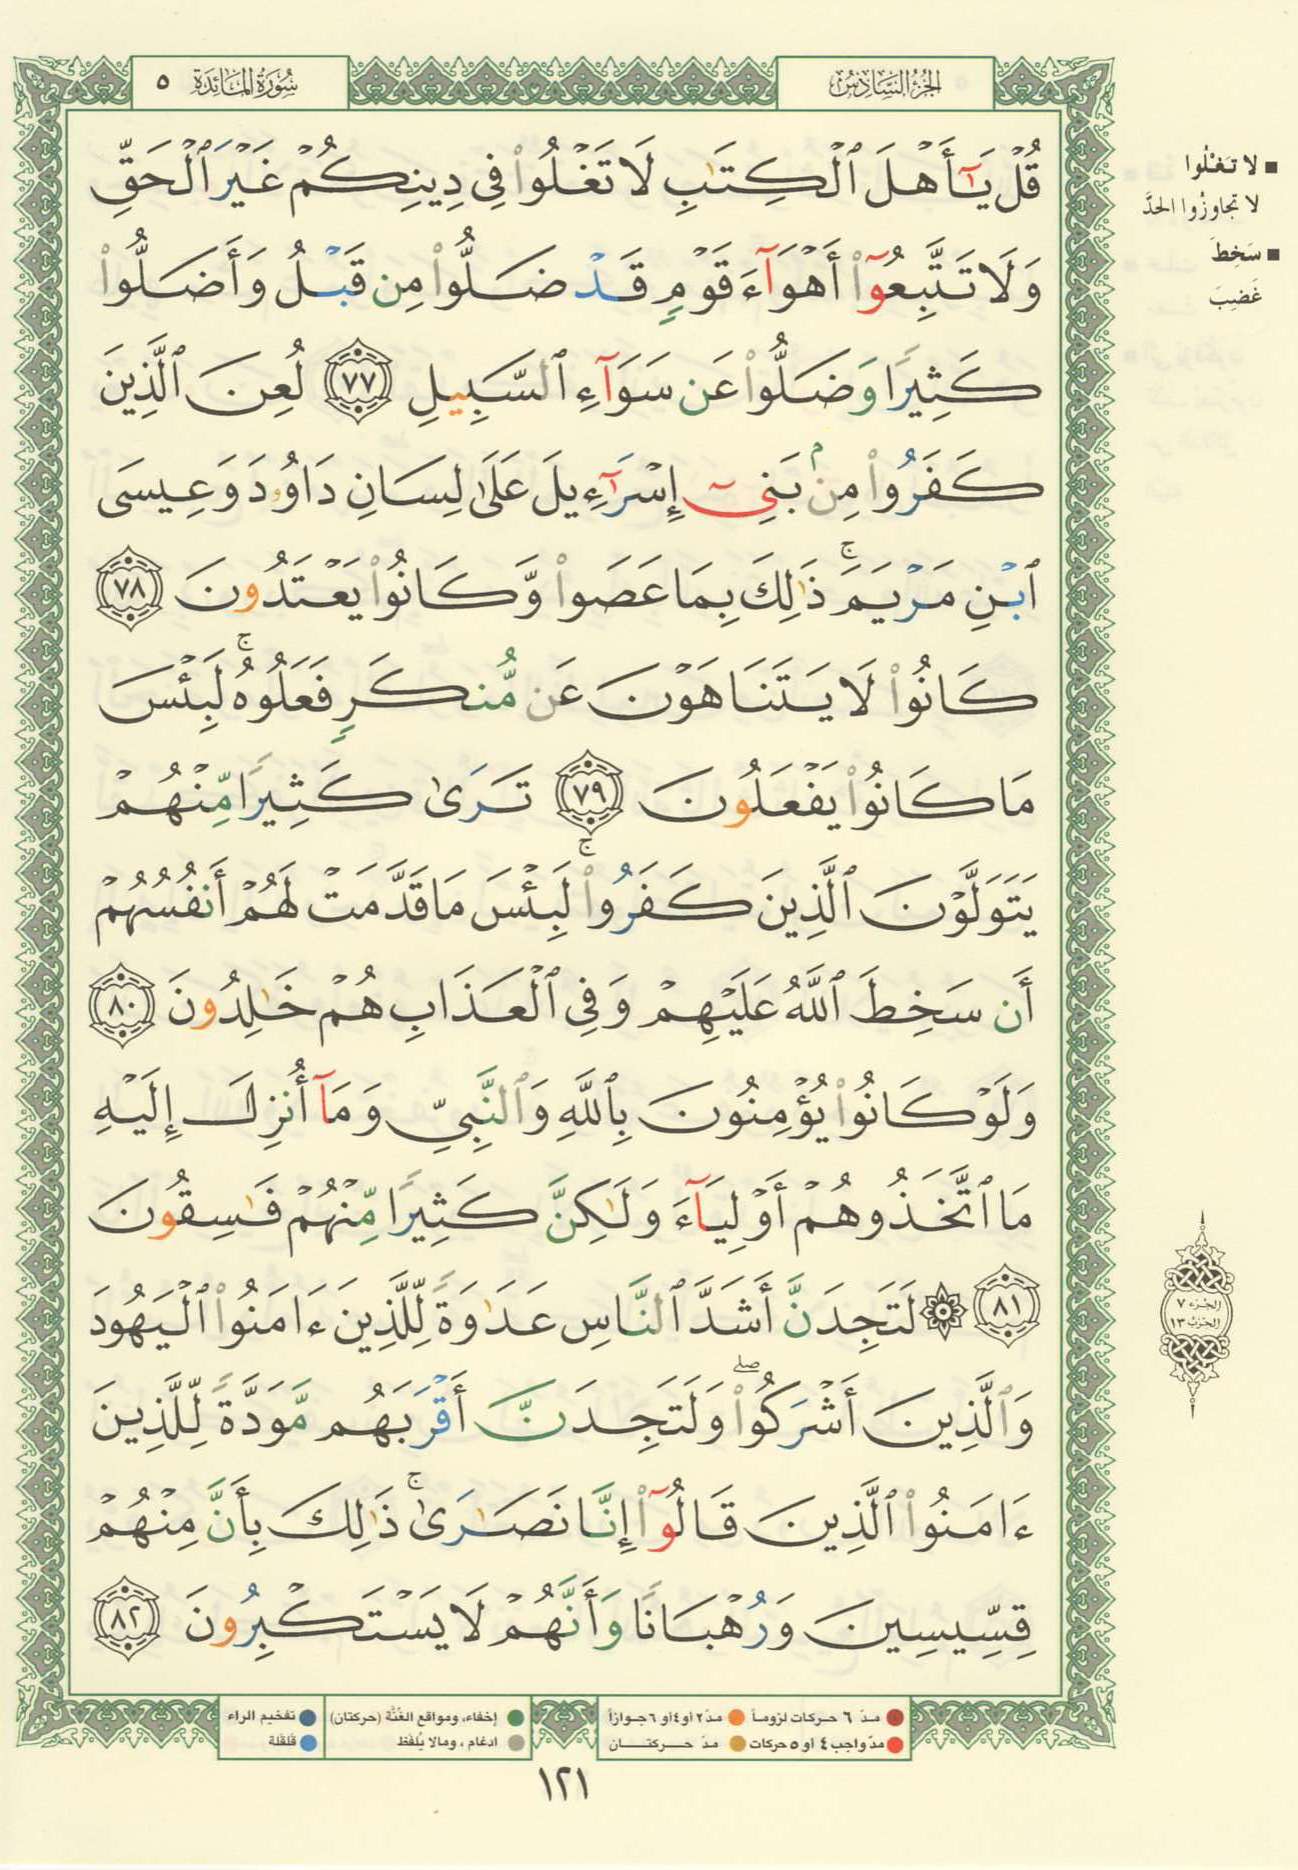 سُورَةُ المَائدَة ٥
الجُزءُ السَّادِسُ
قُلْ يَٰٓأَهْلَ ٱلْكِتَٰبِ لَا تَغْلُوا۟ فِى دِينِكُمْ غَيْرَ ٱلْحَقِّ
وَلَا تَتَّبِعُوٓا۟ أَهْوَآءَ قَوْمٍ قَدْ ضَلُّوا۟ مِن قَبْلُ وَأَضَلُّوا۟
كَثِيرًا وَضَلُّوا۟ عَن سَوَآءِ ٱلسَّبِيلِ ٧٧ لُعِنَ ٱلَّذِينَ
كَفَرُوا۟ مِنۢ بَنِىٓ إِسْرَٰٓءِيلَ عَلَىٰ لِسَانِ دَاوُۥدَ وَعِيسَى
ٱبْنِ مَرْيَمَ ۚ ذَٰلِكَ بِمَا عَصَوا۟ وَّكَانُوا۟ يَعْتَدُونَ ٧٨
كَانُوا۟ لَا يَتَنَاهَوْنَ عَن مُّنكَرٍ فَعَلُوهُ ۚ لَبِئْسَ
مَا كَانُوا۟ يَفْعَلُونَ ٧٩ تَرَىٰ كَثِيرًا مِّنْهُمْ
يَتَوَلَّوْنَ ٱلَّذِينَ كَفَرُوا۟ ۚ لَبِئْسَ مَا قَدَّمَتْ لَهُمْ أَنفُسُهُمْ
أَن سَخِطَ ٱللَّهُ عَلَيْهِمْ وَفِى ٱلْعَذَابِ هُمْ خَٰلِدُونَ ٨٠
وَلَوْ كَانُوا۟ يُؤْمِنُونَ بِٱللَّهِ وَٱلنَّبِىِّ وَمَآ أُنزِلَ إِلَيْهِ
مَا ٱتَّخَذُوهُمْ أَوْلِيَآءَ وَلَٰكِنَّ كَثِيرًا مِّنْهُمْ فَٰسِقُونَ
٨١ ۞ لَتَجِدَنَّ أَشَدَّ ٱلنَّاسِ عَدَٰوَةً لِّلَّذِينَ ءَامَنُوا۟ ٱلْيَهُودَ
وَٱلَّذِينَ أَشْرَكُوا۟ ۖ وَلَتَجِدَنَّ أَقْرَبَهُم مَّوَدَّةً لِّلَّذِينَ
ءَامَنُوا۟ ٱلَّذِينَ قَالُوٓا۟ إِنَّا نَصَٰرَىٰ ۚ ذَٰلِكَ بِأَنَّ مِنْهُمْ
قِسِّيسِينَ وَرُهْبَانًا وَأَنَّهُمْ لَا يَسْتَكْبِرُونَ ٨٢
■ لا تَغْلُوا
لا تجاوزُوا الحدَّ
■ سَخِطَ
غَضِبَ
الجُزء ٧
الحِزب ١٣
● مدّ ٦ حركات لزوماً ● مدّ ٢ أو ٤ أو ٦ جوازاً
● مدّ واجب ٤ أو ٥ حركات ● مدّ حركتان
● إخفاء، ومواقع الغُنَّة (حركتان) ● تفخيم الراء
● ادغام، ومالا يُلفَظ ● قلقلة
١٢١